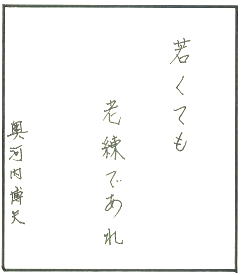 若くても
老練であれ
奥河内博夫